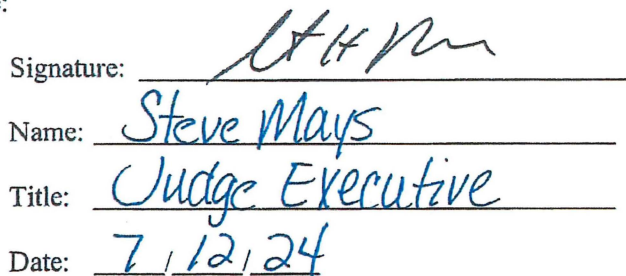 Signature:
Name: Steve Mays
Title: Judge Executive
Date: 7/12/24